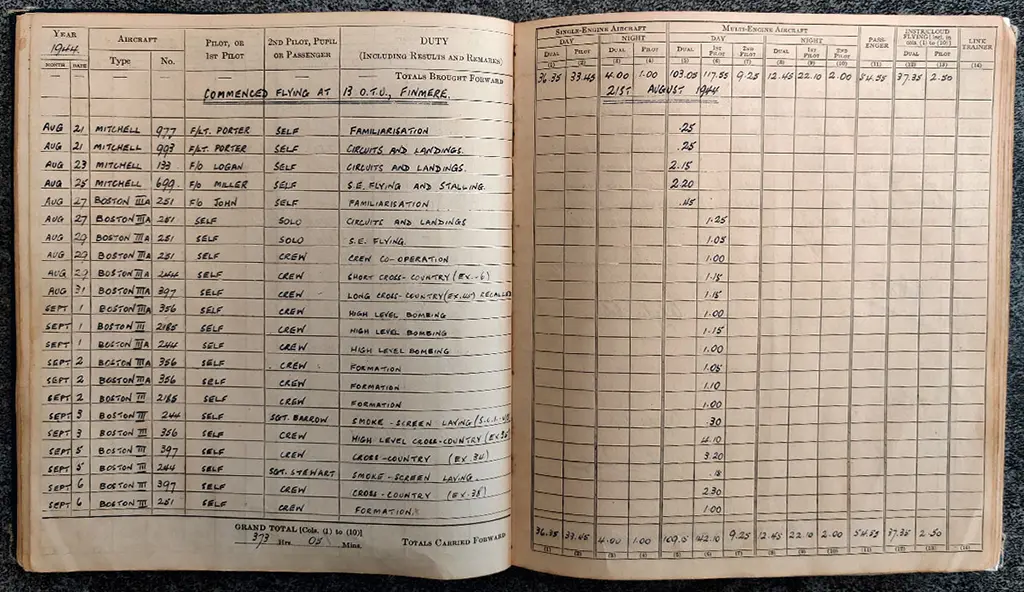 YEAR AIRCRAFT PILOT, OR 2ND PILOT, PUPIL DUTY SINGLE-ENGINE AIRCRAFT MULTI-ENGINE AIRCRAFT PASS- INSTR/CLOUD LINK
1944 1ST PILOT OR PASSENGER (INCLUDING RESULTS AND REMARKS) DAY NIGHT DAY NIGHT ENGER FLYING [Incl. in TRAINER
MONTH DATE Type No. DUAL PILOT DUAL PILOT DUAL 1ST PILOT 2ND PILOT DUAL 1ST PILOT 2ND PILOT cols. (1) to (10)] DUAL PILOT
— — — — — — TOTALS BROUGHT FORWARD (1) (2) (3) (4) (5) (6) (7) (8) (9) (10) (11) (12) (13) (14)
36.35 33.45 4.00 1.00 103.05 117.55 9.25 12.45 22.10 2.00 54.55 37.35 2.50
COMMENCED FLYING AT 13 O.T.U., FINMERE. 21ST AUGUST 1944
AUG 21 MITCHELL 977 F/LT. PORTER SELF FAMILIARISATION .25
AUG 21 MITCHELL 993 F/LT. PORTER SELF CIRCUITS AND LANDINGS. .25
AUG 23 MITCHELL 133 F/O LOGAN SELF CIRCUITS AND LANDINGS. 2.15
AUG 25 MITCHELL 699. F/O MILLER SELF S.E. FLYING AND STALLING. 2.20
AUG 27 BOSTON IIIA 251 F/O JOHN SELF FAMILIARISATION .45
AUG 27 BOSTON IIIA 251 SELF SOLO CIRCUITS AND LANDINGS 1.25
AUG 29 BOSTON IIIA 251 SELF SOLO S.E. FLYING. 1.05
AUG 29 BOSTON IIIA 251 SELF CREW CREW CO-OPERATION 1.00
AUG 29 BOSTON IIIA 244 SELF CREW SHORT CROSS-COUNTRY (EX.-6) 1.15
AUG 31 BOSTON IIIA 397 SELF CREW LONG CROSS-COUNTRY (EX. RECALLED 1.15
SEPT 1 BOSTON IIIA 356 SELF CREW HIGH LEVEL BOMBING 1.00
SEPT 1 BOSTON III 2185 SELF CREW HIGH LEVEL BOMBING 1.15
SEPT 1 BOSTON IIIA 244 SELF CREW HIGH LEVEL BOMBING 1.00
SEPT 2 BOSTON IIIA 356 SELF CREW FORMATION 1.05
SEPT 2 BOSTON IIIA 356 SELF CREW FORMATION 1.10
SEPT 2 BOSTON III 2185 SELF CREW FORMATION 1.00
SEPT 3 BOSTON III 244 SELF SGT. BARROW SMOKE-SCREEN LAYING .30
SEPT 3 BOSTON III 356 SELF CREW HIGH LEVEL CROSS-COUNTRY 4.10
SEPT 5 BOSTON III 397 SELF CREW CROSS-COUNTRY (EX.34) 3.20
SEPT 5 BOSTON III 244 SELF SGT. STEWART SMOKE-SCREEN LAYING
SEPT 6 BOSTON III 397 SELF CREW CROSS-COUNTRY (EX.35) 2.30
SEPT 6 BOSTON III 251 SELF CREW FORMATION. 1.00
GRAND TOTAL [Cols. (1) to (10)] TOTALS CARRIED FORWARD 36.35 33.45 4.00 1.00 142.10 9.25 12.45 22.10 2.00 54.55 37.35 2.50
373 Hrs. 05 Mins. (1) (2) (3) (4) (5) (6) (7) (8) (9) (10) (11) (12) (13) (14)